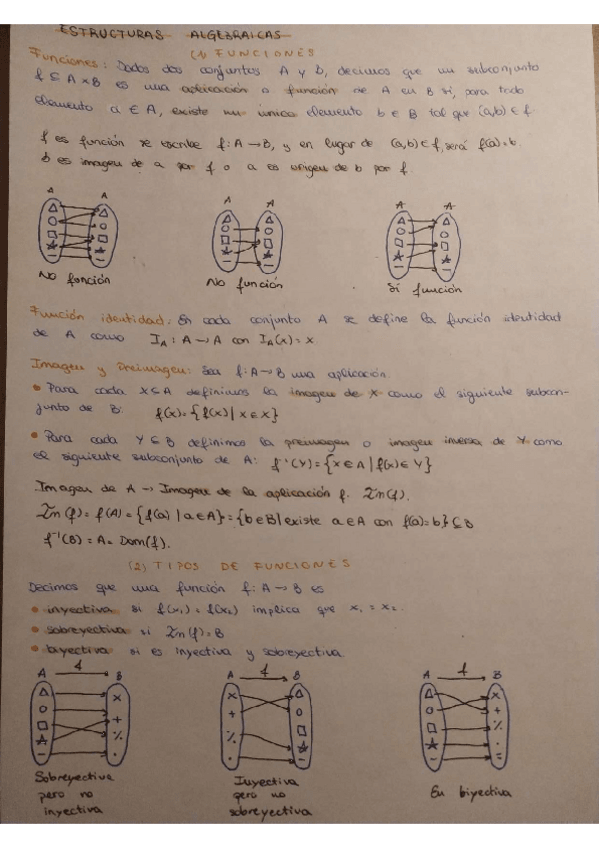 ESTRUCTURAS ALGEBRAICAS
(1) FUNCIONES
Funciones: Dados dos conjuntos A y B, decimos que un subconjunto
f ⊆ A×B es una aplicación o función de A en B si, para todo
elemento a ∈ A, existe un único elemento b ∈ B tal que (a,b) ∈ f.
f es función se escribe f: A → B, y en lugar de (a,b) ∈ f, será f(a)=b.
b es imagen de a por f o a es origen de b por f.
A A A A A A
No función No función Sí función
Función identidad: En cada conjunto A se define la función identidad
de A como I_A : A → A con I_A(x) = x.
Imagen y Preimagen: Sea f: A → B una aplicación.
• Para cada X ⊆ A definimos la imagen de X como el siguiente subcon-
junto de B: f(x) = {f(x) | x ∈ X}
• Para cada Y ⊆ B definimos la preimagen o imagen inversa de Y como
el siguiente subconjunto de A: f⁻¹(Y) = {x ∈ A | f(x) ∈ Y}
Imagen de A → Imagen de la aplicación f. Im(f).
Im(f) = f(A) = {f(a) | a ∈ A} = {b ∈ B | existe a ∈ A con f(a) = b} ⊆ B
f⁻¹(B) = A = Dom(f).
(2) TIPOS DE FUNCIONES
Decimos que una función f: A → B es
• inyectiva si f(x₁) = f(x₂) implica que x₁ = x₂.
• sobreyectiva si Im(f) = B
• biyectiva si es inyectiva y sobreyectiva
A f B A f B A f B
Sobreyectiva
pero no
inyectiva
Inyectiva
pero no
sobreyectiva
En biyectiva